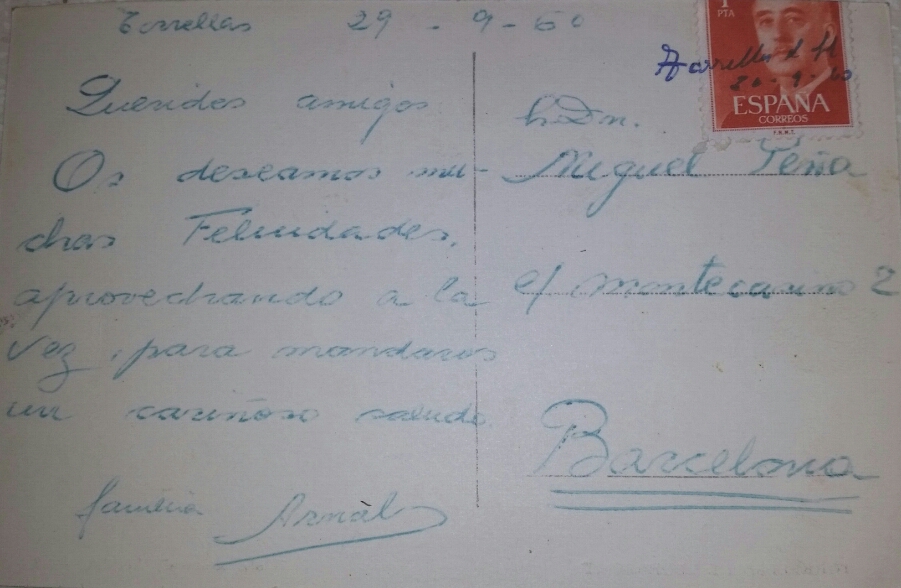 Torrellas 29-9-60
Queridos amigos
Os deseamos mu-
chas Felicidades,
aprovechando a la
vez, para mandaros
un cariñoso saludo
familia Arnal
1
PTA
ESPAÑA
CORREOS
F.N.M.T.
30-9-60
Dn.
Miguel Peña
c/ Montecasino 2
Barcelona